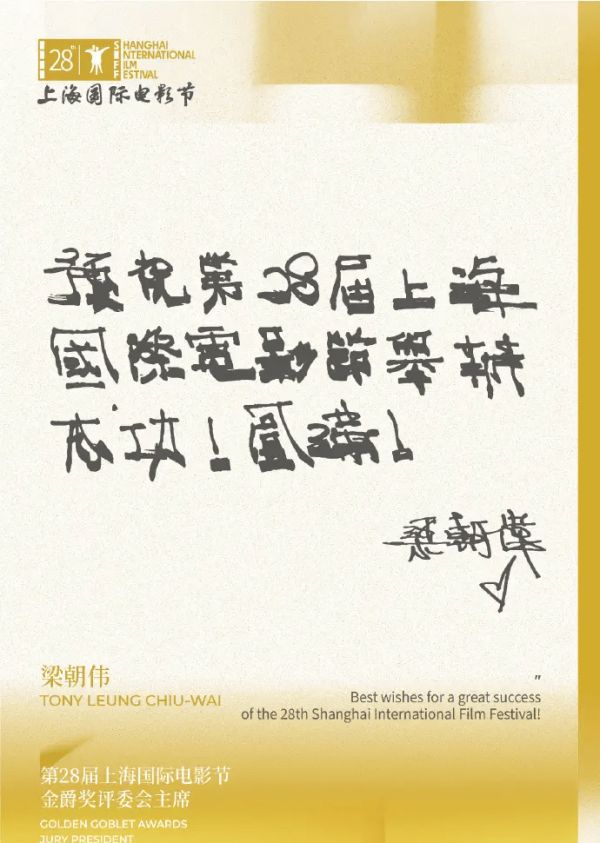 28th
SHANGHAI
INTERNATIONAL
FILM
FESTIVAL
上海国际电影节
預祝第28届上海
國際電影節舉辦
功！圓滿！
梁朝伟
TONY LEUNG CHIU-WAI
"
Best wishes for a great success
of the 28th Shanghai International Film Festival!
第28届上海国际电影节
金爵奖评委会主席
GOLDEN GOBLET AWARDS
JURY PRESIDENT